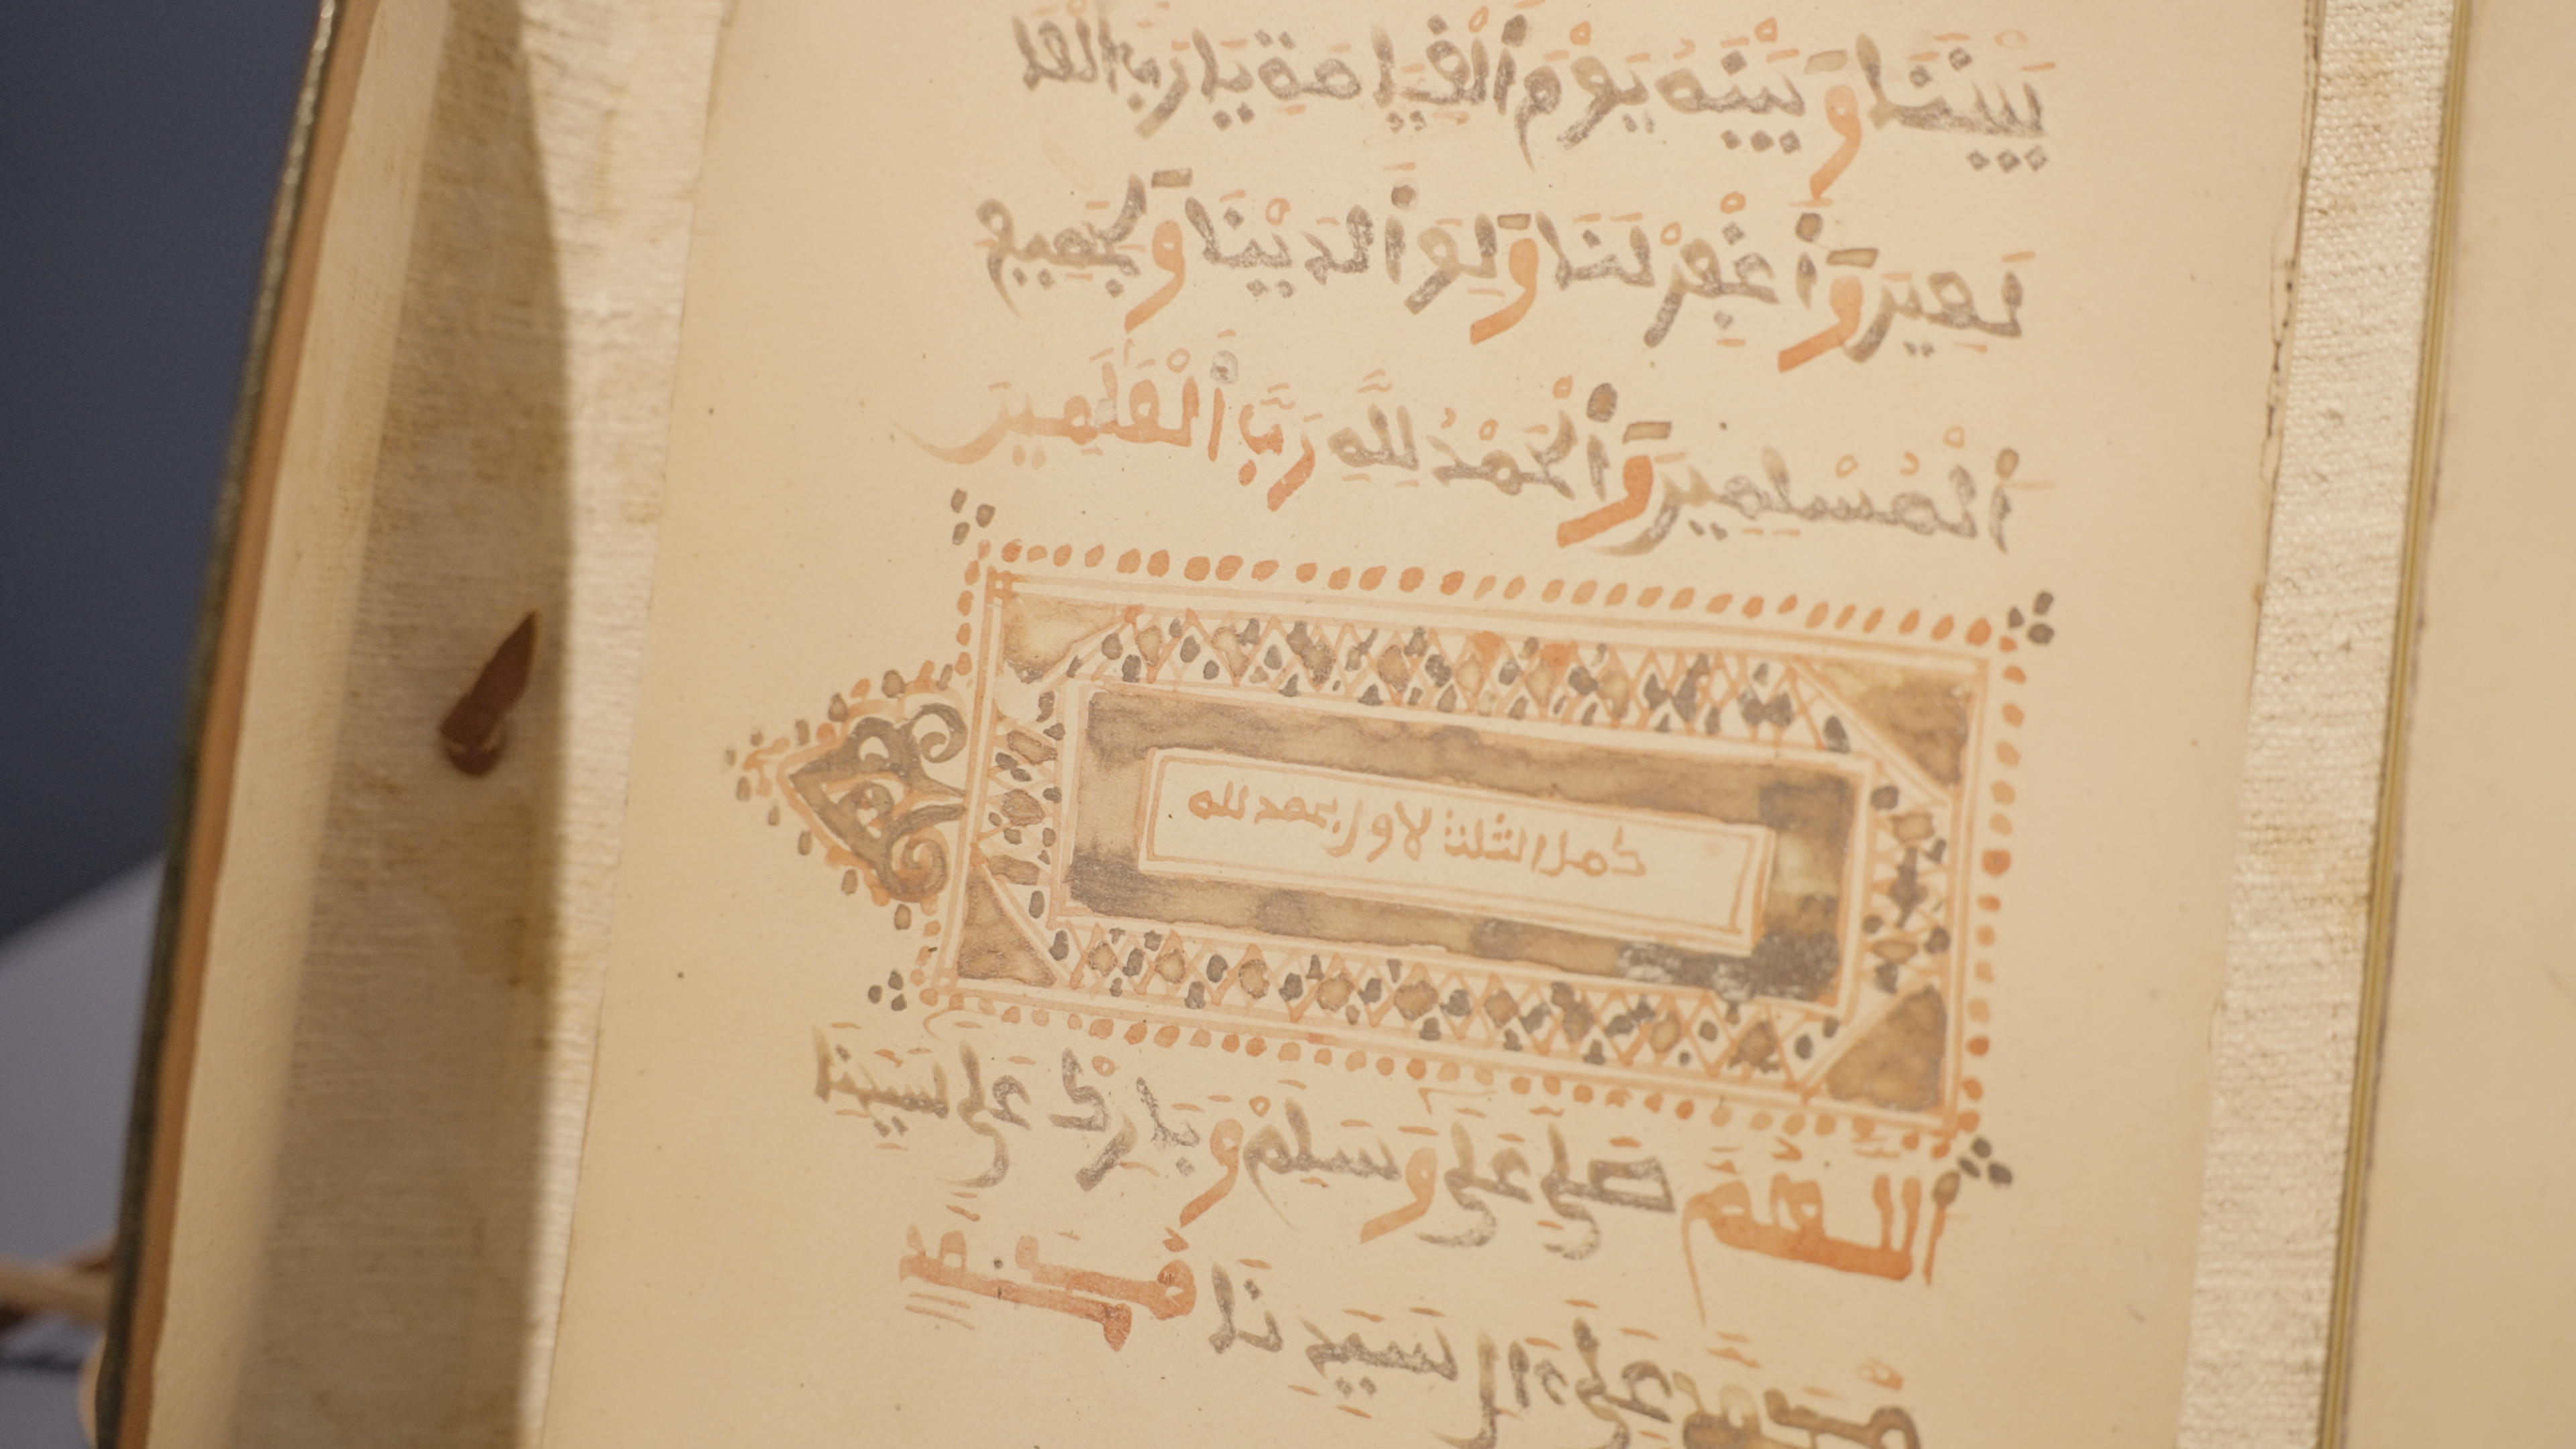 بَيْنَنَا وَبَيْنَهُ يَوْمَ الْقِيَامَةِ يَا رَبَّ الْعَا
لَمِينَ وَاغْفِرْ لَنَا وَلِوَالِدَيْنَا وَلِجَمِيعِ
الْمُسْلِمِينَ وَالْحَمْدُ لِلَّهِ رَبِّ الْعَالَمِينَ
كمل الثلث الاول بحمد لله
اللَّهُمَّ صَلِّ عَلَى وَسَلِّمْ وَبَارِكْ عَلَى
وَعَلَى ءَالِ سَيِّدِنَا مُحَمَّدٍ